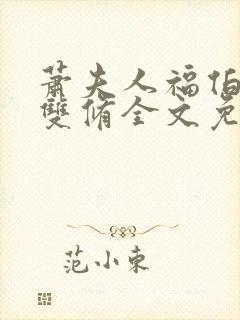 蕭夫人福伯
雙脩全文免
范小東